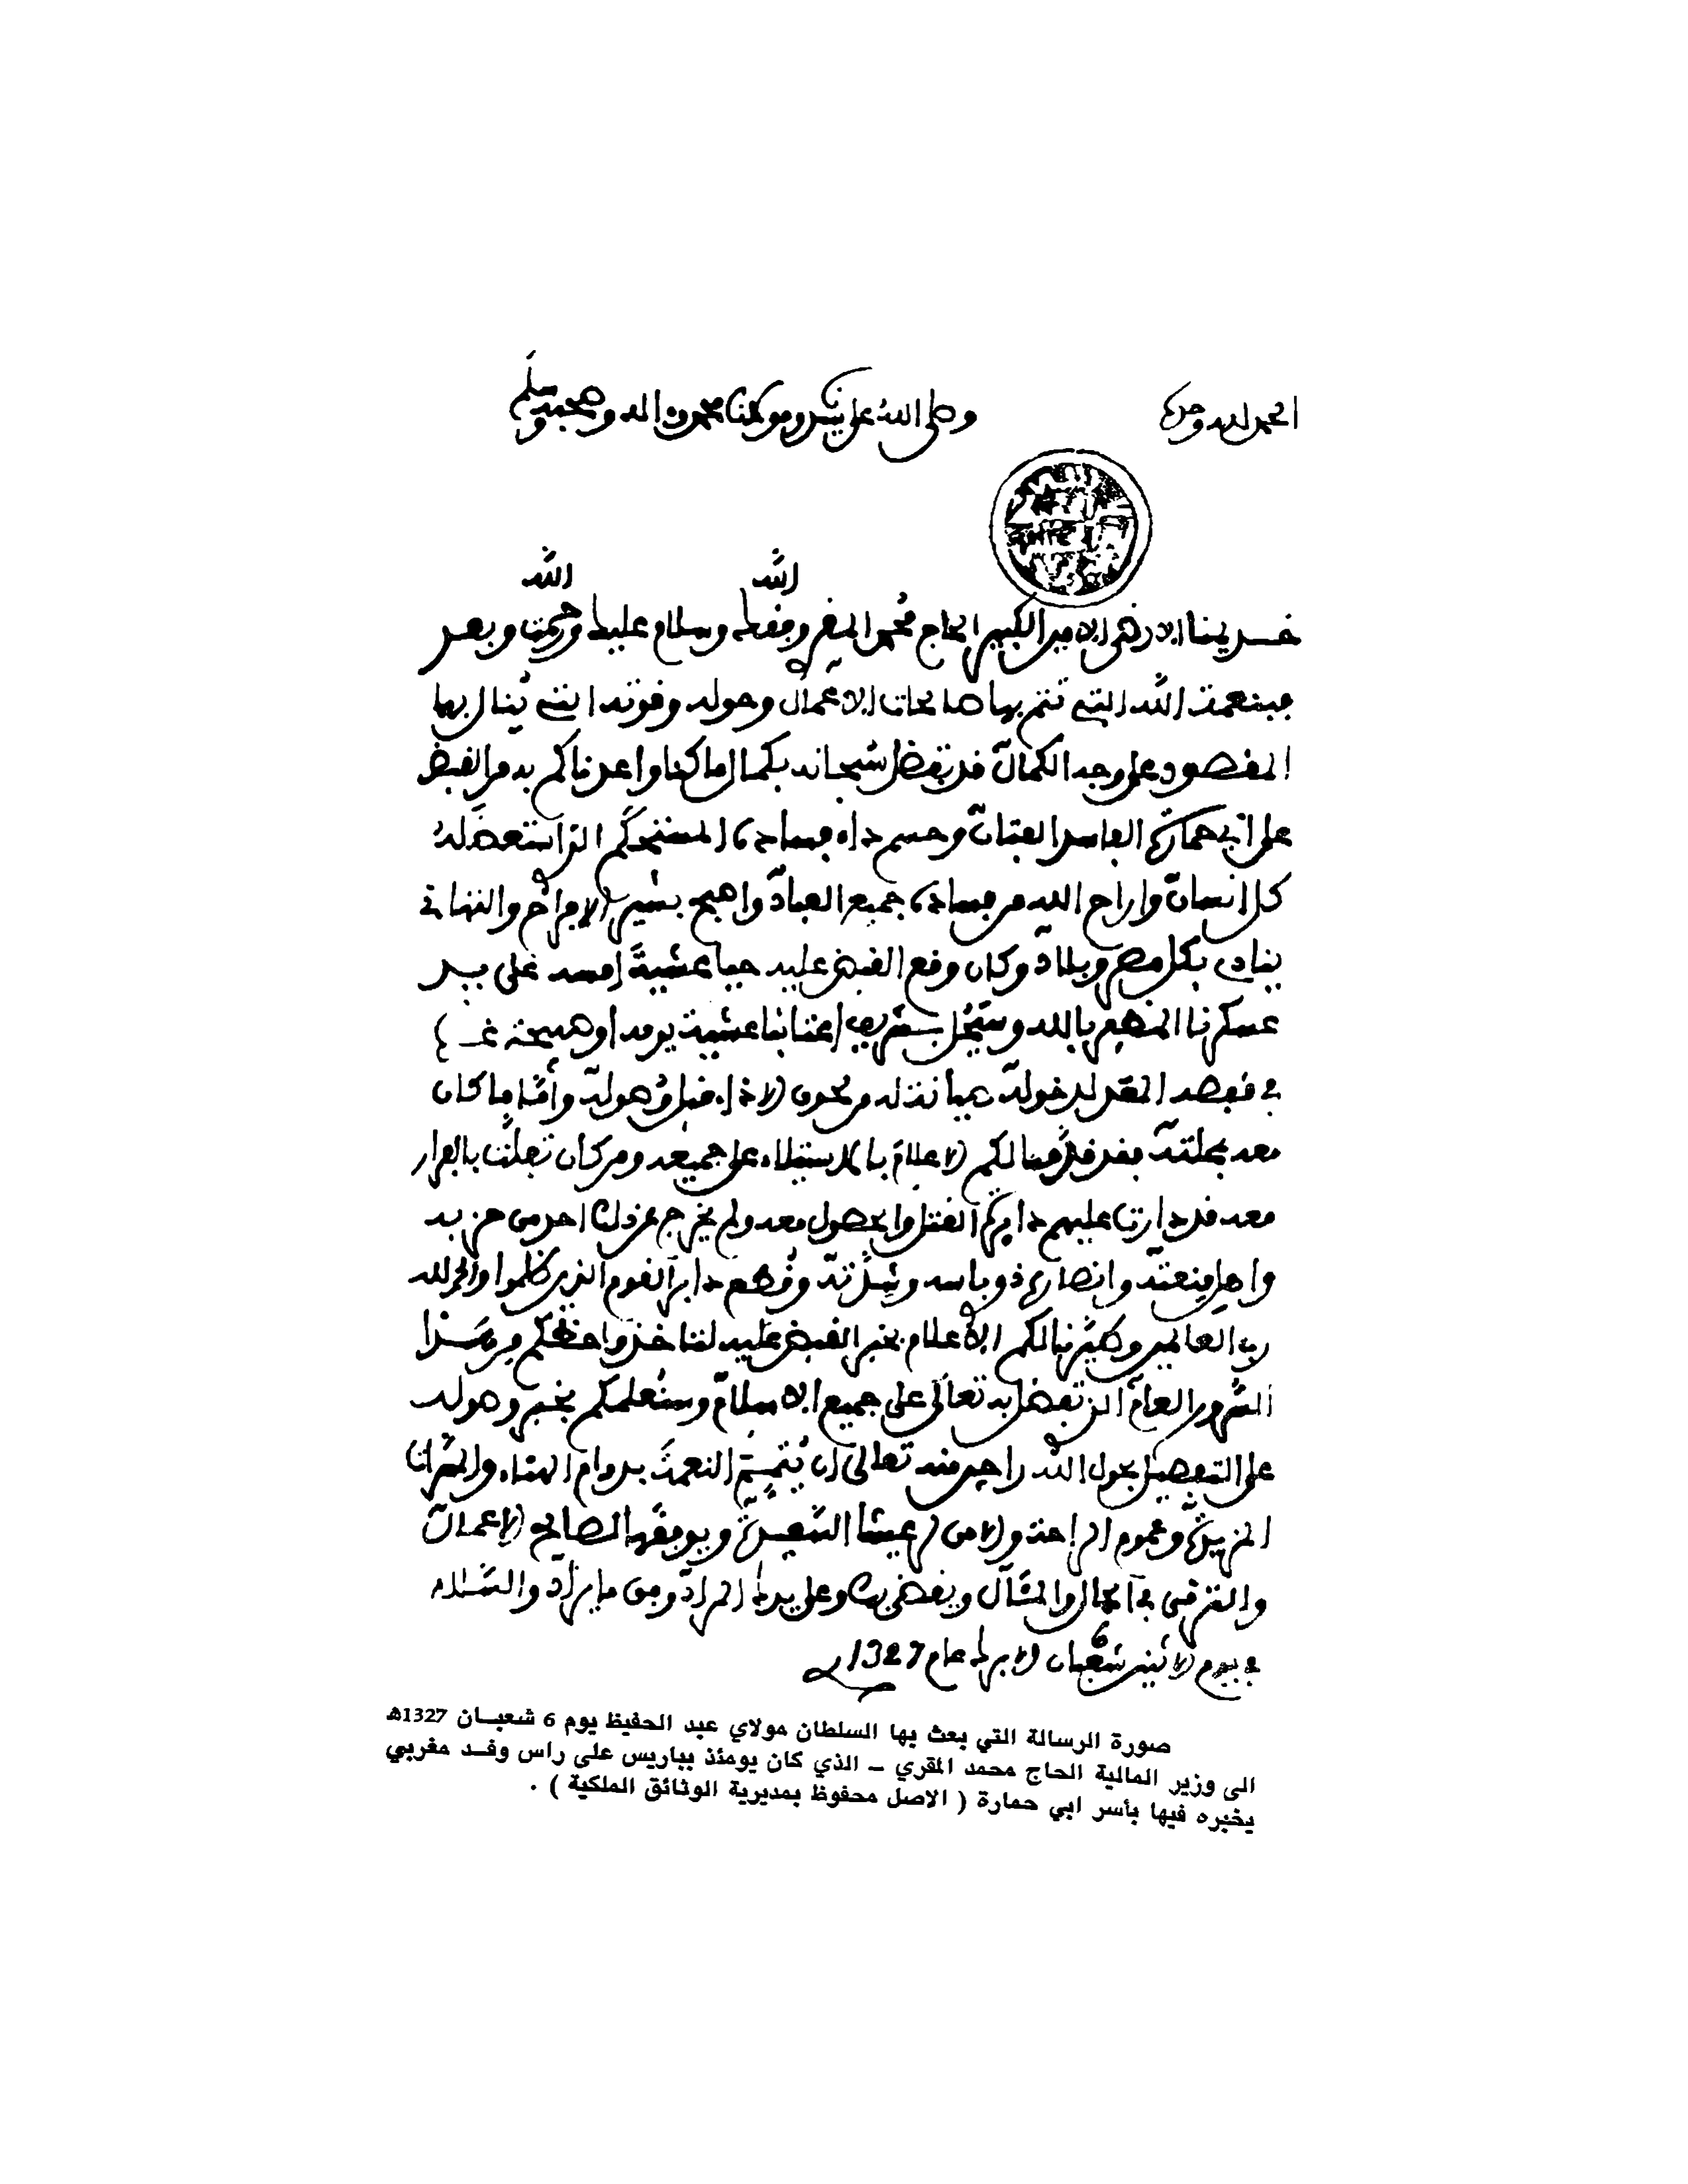 الحمد لله وحده
وصلى الله على سيدنا ومولانا محمد وءاله وصحبه وسلم
الله الله
خديمنا الارضى الامين الكبير الحاج محمد المقري وفقك وسلام عليك ورحمة وبعد
فبنعمة الله التي تتم بها صالحات الاعمال وحوله وقوته التي ينال بها
المقصود على وجه الكمال قد تفضل سبحانه بكمال ما كنا واعدناكم به من القبض
على ابي حمارة الفاسد الفتان وحسم داء فساده المستحكم الذي استعضله
كل انسان واراح الله من فساده جميع العباد واصبح بشير الافراح والتهاني
ينادي بكل مصر وبلاد وكان وقع القبض عليه حيا عشية امسه على يد
عسكرنا المنصور بالله وسيحل بشريف اعتابنا عشية يومه او صبيحة غده
في قفصه المعد لدخوله فيما نزله من بحور الاذاء قبل وصوله وأما ما كان
معه بمحلته فقد قدمنا لكم الاعلام بالاستيلاء على جميعه ومن كان تفلت بالفرار
معه قد دارت عليهم دايرة القتل والحصول معه ولم يخرج عن ذلك احد من حزبه
واهل منعته وانصاره ذو باسه وشدته وقطع دابر القوم الذين ظلموا والحمد لله
رب العالمين وصيرنا لكم الاعلام بخبر القبض عليه لتاخذوا حظكم من هذا
السرور العام الذي تفضل به تعالى على جميع الاسلام وسنعلمكم بخبر وصوله
على التفصيل بحول الله راجين منه تعالى ان يتمم النعمة بدوام الهناء والمسرات
المزيدة وعموم الراحة والامن لرعيتنا السعيدة ويوفقها لصالح الاعمال
والترقي في الحال والمئال ويقضي بك وعلى يدك المراد وفق ما يراد والسلام
في يوم الاثنين 6 شعبان الابرك عام 1327
صورة الرسالة التي بعث بها السلطان مولاي عبد الحفيظ يوم 6 شعبــان 1327ه
الى وزير المالية الحاج محمد المقري – الذي كان يومئذ بباريس على راس وفــد مغربي
يخبره فيها بأسر ابي حمارة ( الاصل محفوظ بمديرية الوثائق الملكية ) .